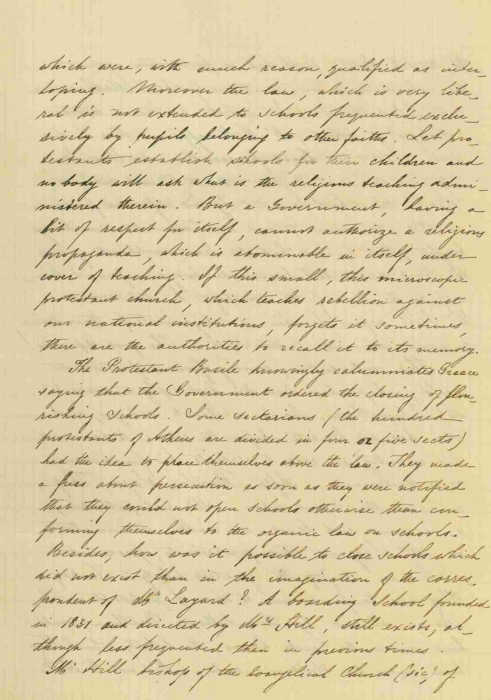 which were, with much reason, qualified as inter-
loping. Moreover the law, which is very libe-
ral is not extended to schools frequented exclu-
sively by pupils belonging to other faiths. Let pro-
testants establish schools for their children and
nobody will ask what is the religious teaching admi-
nistered therein. But a Government, having a
bit of respect for itself, cannot authorize a religious
propaganda, which is abominable in itself, under
cover of teaching. If this small, this microscopic
protestant church, which teaches rebellion against
our national institutions, forgets it sometimes,
there are the authorities to recall it to its memory.
The Protestant Basile knowingly calumniates Greece
saying that the Government ordered the closing of flou-
rishing schools. Some sectarians (the hundred
protestants of Athens are divided in four or five sects)
had the idea to place themselves above the law. They made
a fuss about persecution as soon as they were notified
that they could not open schools otherwise than con-
forming themselves to the organic law on schools.
Besides, how was it possible to close schools which
did not exist than in the imagination of the corres-
pondent of Mr Layard? A boarding School founded
in 1831 and directed by Mrs Hill, still exists, al-
though less frequented than in previous times.
Mr Hill bishop of the evangelical Church (sic) of